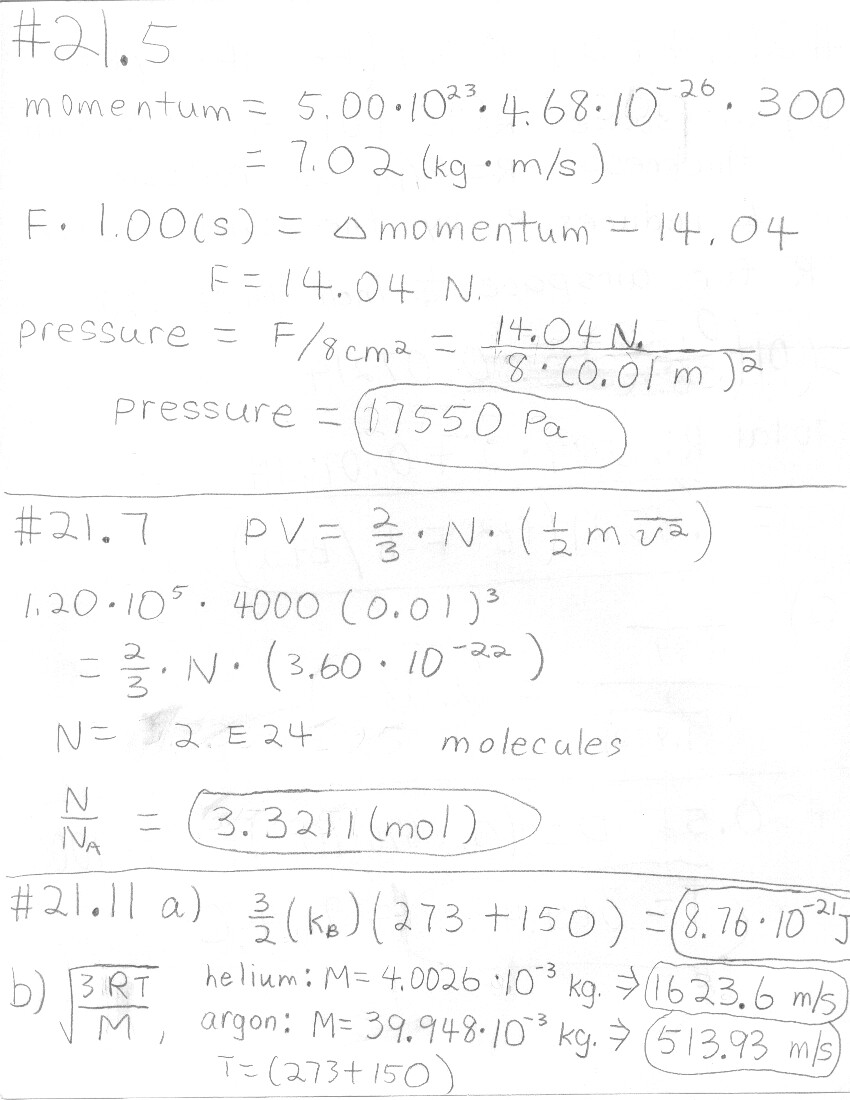 #21.5
momentum = 5.00·10²³·4.68·10⁻²⁶·300
= 7.02 (kg·m/s)
F·1.00(s) = Δmomentum = 14.04
F = 14.04 N.
pressure = F/8cm² = 14.04 N. / 8·(0.01m)²
pressure = 17550 Pa
#21.7 PV = 2/3·N·(1/2 m v̅²)
1.20·10⁵·4000(0.01)³
= 2/3·N·(3.60·10⁻²²)
N = 2.E24 molecules
N/N_A = 3.3211(mol)
#21.11 a) 3/2(k_B)(273+150) = 8.76·10⁻²¹J
b) √(3RT/M), helium: M = 4.0026·10⁻³ kg. ⇒ 1623.6 m/s
argon: M = 39.948·10⁻³ kg. ⇒ 513.93 m/s
T = (273+150)